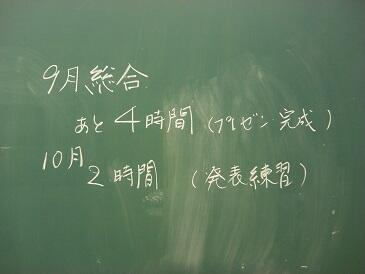 9月総合
あと4時間(プレゼン完成)
10月
2時間(発表練習)